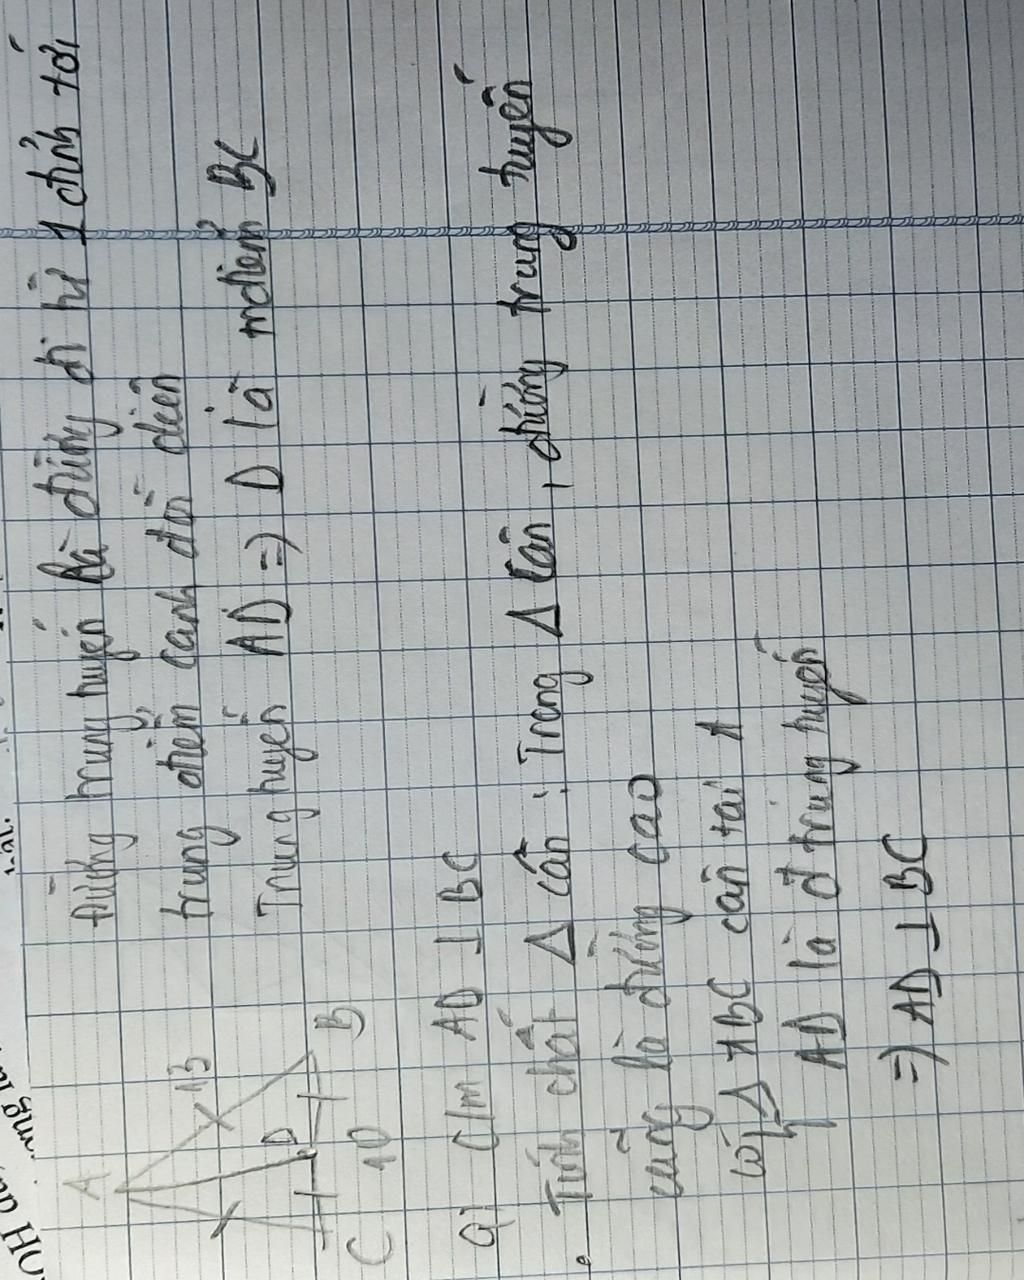 A
13
D
C
10
B
Đường trung tuyến là đường đi từ 1 đỉnh tới
trung điểm cạnh đối diện
Trung tuyến AD => D là mđiểm BC
a) C/m AD ⊥ BC
• Tính chất Δ cân : Trong Δ cân, đường trung tuyến
cũng là đường cao
Có Δ ABC cân tại A
AD là đ trung tuyến
=) AD ⊥ BC